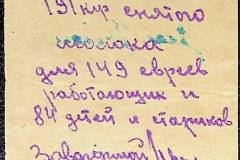 191 кгр снятого
молока
для 149 евреев
работающих и
84 детей и стариков